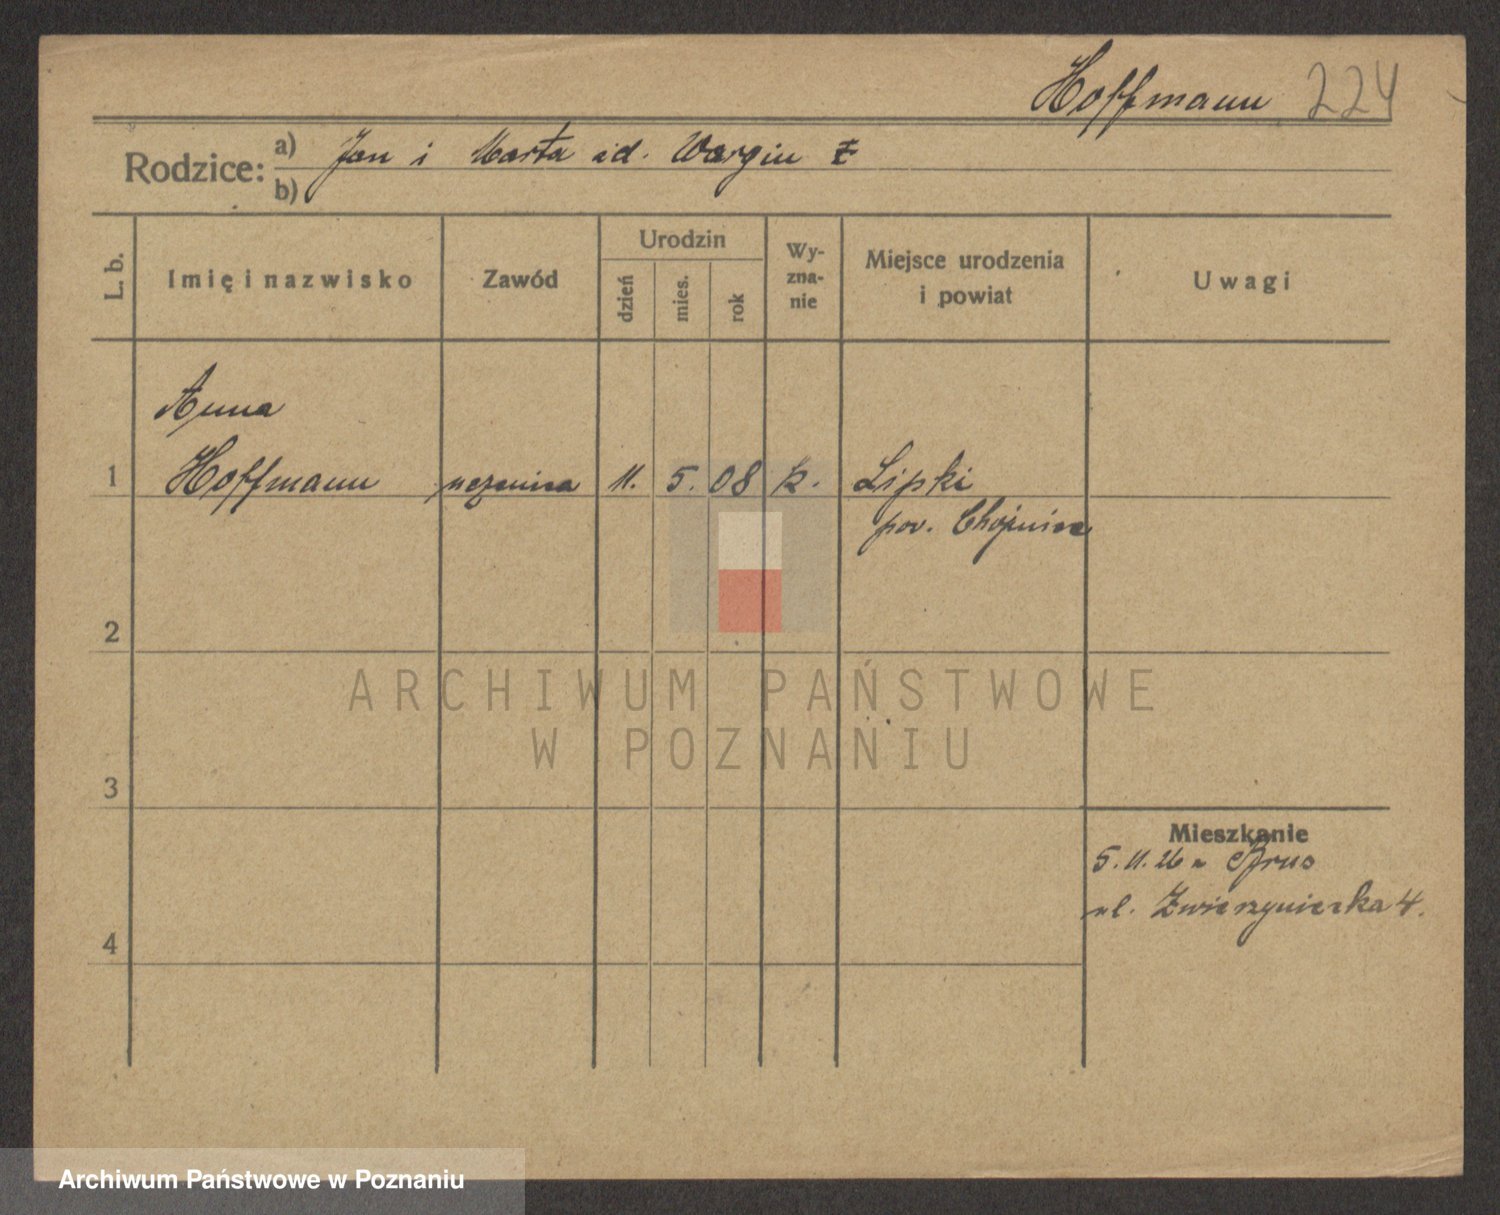 Hoffmann 224
Rodzice: a) Jan i Marta zd. Wargin
b)
L. b. Imię i nazwisko Zawód Urodzin dzień mies. rok Wyznanie Miejsce urodzenia i powiat Uwagi
Anna
1 Hoffmann uczenica 11. 5. 08 k. Lipki
pow. Chojnice
2
ARCHIWUM PAŃSTWOWE
W POZNANIU
3
Mieszkanie
5.11.26 z Brus
ul. Zwierzyniecka 4.
4
Archiwum Państwowe w Poznaniu